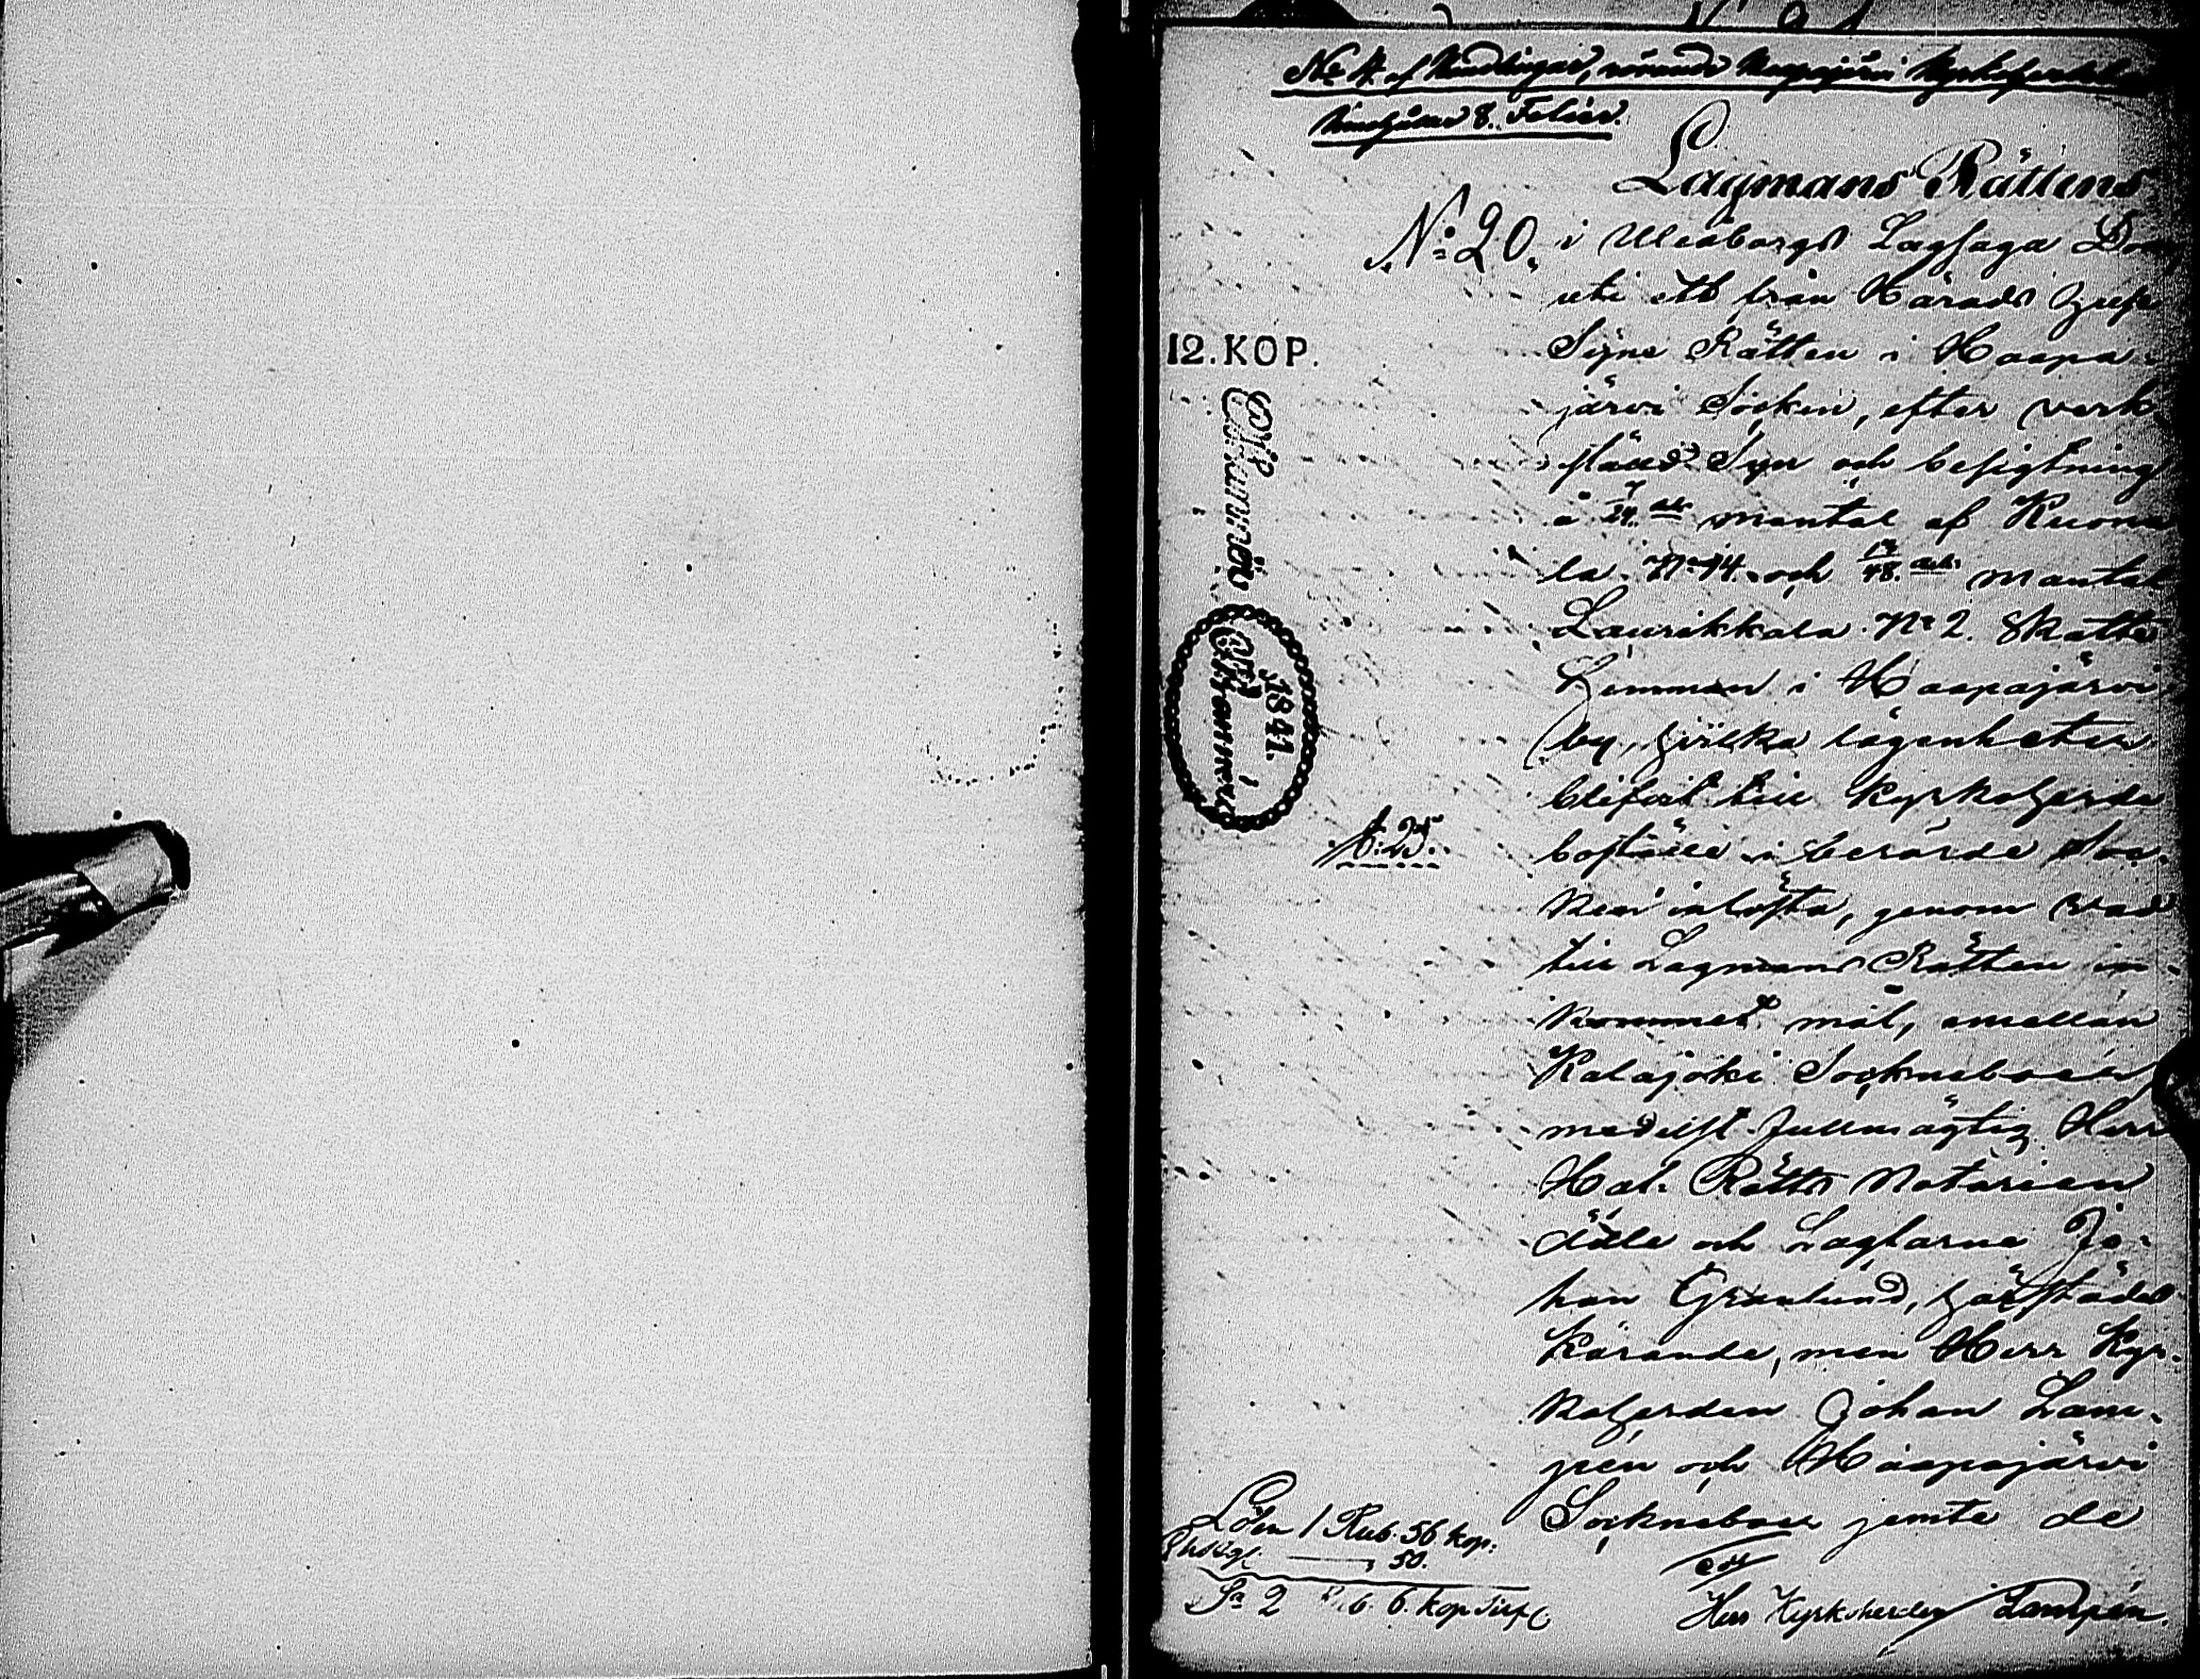 No 4 af Handlingar, rörande Haapajärvi
innehåller 8. Folier.
Lagmans Rättens
No 20. i Uleåborgs Lagsaga Dom
uti ett från Härads Husesyns
Syne Rätten i Haapa-
järvi Socken, efter verk-
stäld Syn och besigtning
å 7/24.dels mantal af Kuona
la No 14. och 17/48.dels mantal
Laurikkala No 2. Skatte
Hemman i Haapajärvi
by, hvilka lägenheter
blifvit till Kyrkoherde
boställe i berörde Soc-
ken inlösta, genom vad
till Lagmans Rätten in-
kommet mål, emellan
Kalajoki Sockneboer
medelst fullmägtig Herr
Hof Rätts Notarien
och Lagtarne Jo-
han Granlund, härstädes
Kärande, men Herr Kyr-
koherden Johan Lam-
pén och Haapajärvi
Sockneboer jemte de
12. KOP.
1841.
f. 25.
Lösen 1 Rub. 56 kop.
50.
Sa 2 Rub. 6. kop Silf
Herr Kyrkoherden Lampén.